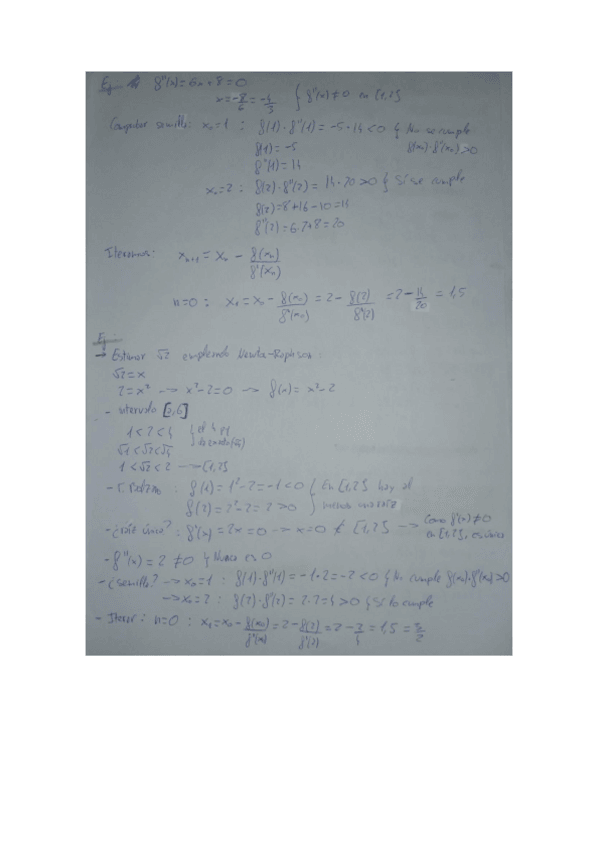 Ej: f''(x)=6x+8=0
x=-8/6=-4/3 { f''(x)≠0 en [1,2]
Comprobar semilla: x₀=1 : f(1)·f''(1)=-5·14<0 { No se cumple
f(1)=-5 f(x₀)·f''(x₀)>0
f''(1)=14
x₀=2 : f(2)·f''(2)=14·20>0 { Sí se cumple
f(2)=8+16-10=14
f''(2)=6·2+8=20
Iteramos: xₙ₊₁=xₙ-f(xₙ)/f'(xₙ)
n=0: x₁=x₀-f(x₀)/f'(x₀)=2-f(2)/f'(2)=2-14/20=1,5
Ej:
→ Estimar √2 empleando Newton-Raphson:
√2=x
2=x² → x²-2=0 → f(x)=x²-2
- intervalo
1<2<4
√1<√2<√4
1<√2<2 → [1,2]
- T. Bolzano: f(1)=1²-2=-1<0 { En [1,2] hay al
f(2)=2²-2=2>0 menos una raíz
- ¿raíz única?: f'(x)=2x=0 → x=0 ∉ [1,2] → Como f'(x)≠0
en [1,2], es única
- f''(x)=2≠0 { Nunca es 0
- ¿Semilla? → x₀=1: f(1)·f''(1)=-1·2=-2<0 { No cumple f(x₀)·f''(x₀)>0
→ x₀=2: f(2)·f''(2)=2·2=4>0 { Sí lo cumple
- Iterar: n=0: x₁=x₀-f(x₀)/f'(x₀)=2-f(2)/f'(2)=2-2/4=1,5=3/2